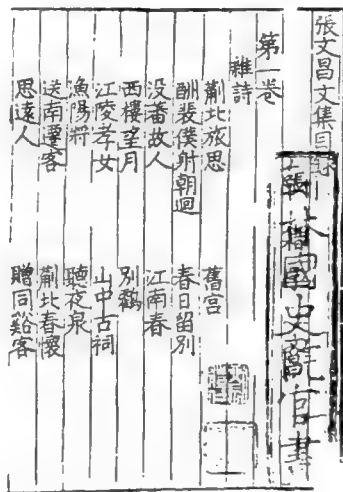 張文昌文集目録
翰林國史院官書
第一卷
雜詩
薊北旅思 舊宮
酬裴僕射朝迴 春日留別
没蕃故人 江南春
西樓望月 別鶴
江陵孝女 山中古祠
漁陽將 聽夜泉
送南遷客 薊北春懷
思遠人 贈同谿客